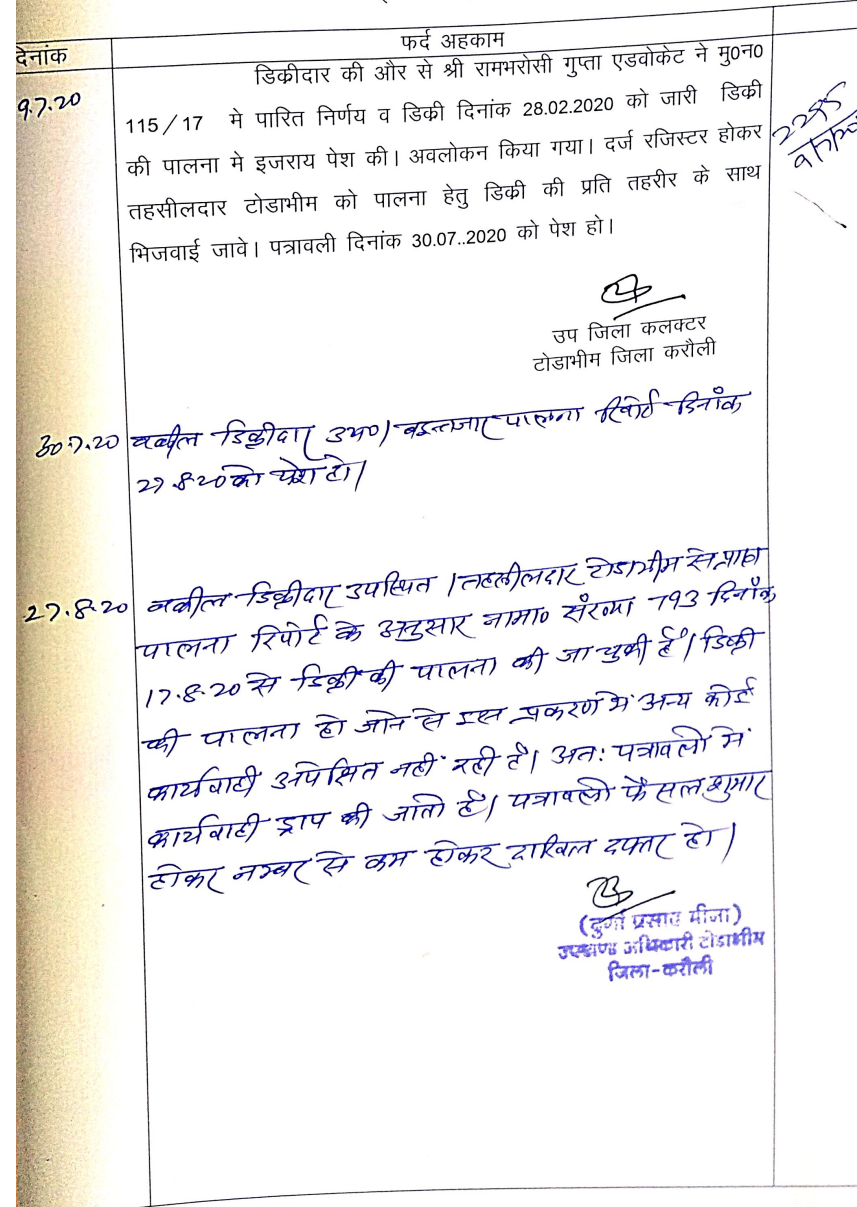 दिनांक
फर्द अहकाम
9.7.20
डिक्रीदार की और से श्री रामभरोसी गुप्ता एडवोकेट ने मु0न0
115/17 मे पारित निर्णय व डिक्री दिनांक 28.02.2020 को जारी डिक्री
की पालना मे इजराय पेश की। अवलोकन किया गया। दर्ज रजिस्टर होकर
तहसीलदार टोडाभीम को पालना हेतु डिक्री की प्रति तहरीर के साथ
भिजवाई जावे। पत्रावली दिनांक 30.07..2020 को पेश हो।
उप जिला कलक्टर
टोडाभीम जिला करौली
30.7.20 वकील डिक्रीदार उप0। बइन्तजार पालना रिपोर्ट दिनांक
27.8.20 को पेश हो।
27.8.20 वकील डिक्रीदार उपस्थित। तहसीलदार टोडाभीम से प्राप्त
पालना रिपोर्ट के अनुसार नामा0 संख्या 793 दिनाँक
17.8.20 से डिक्री की पालना की जा चुकी है। डिक्री
की पालना हो जाने से इस प्रकरण में अन्य कोई
कार्यवाही अपेक्षित नहीं रही है। अतः पत्रावली में
कार्यवाही ड्राप की जाती है। पत्रावली फैसल शुमार
होकर नम्बर से कम होकर दाखिल दफ्तर हो।
(दुर्गा प्रसाद मीना)
उपखण्ड अधिकारी टोडाभीम
जिला-करौली